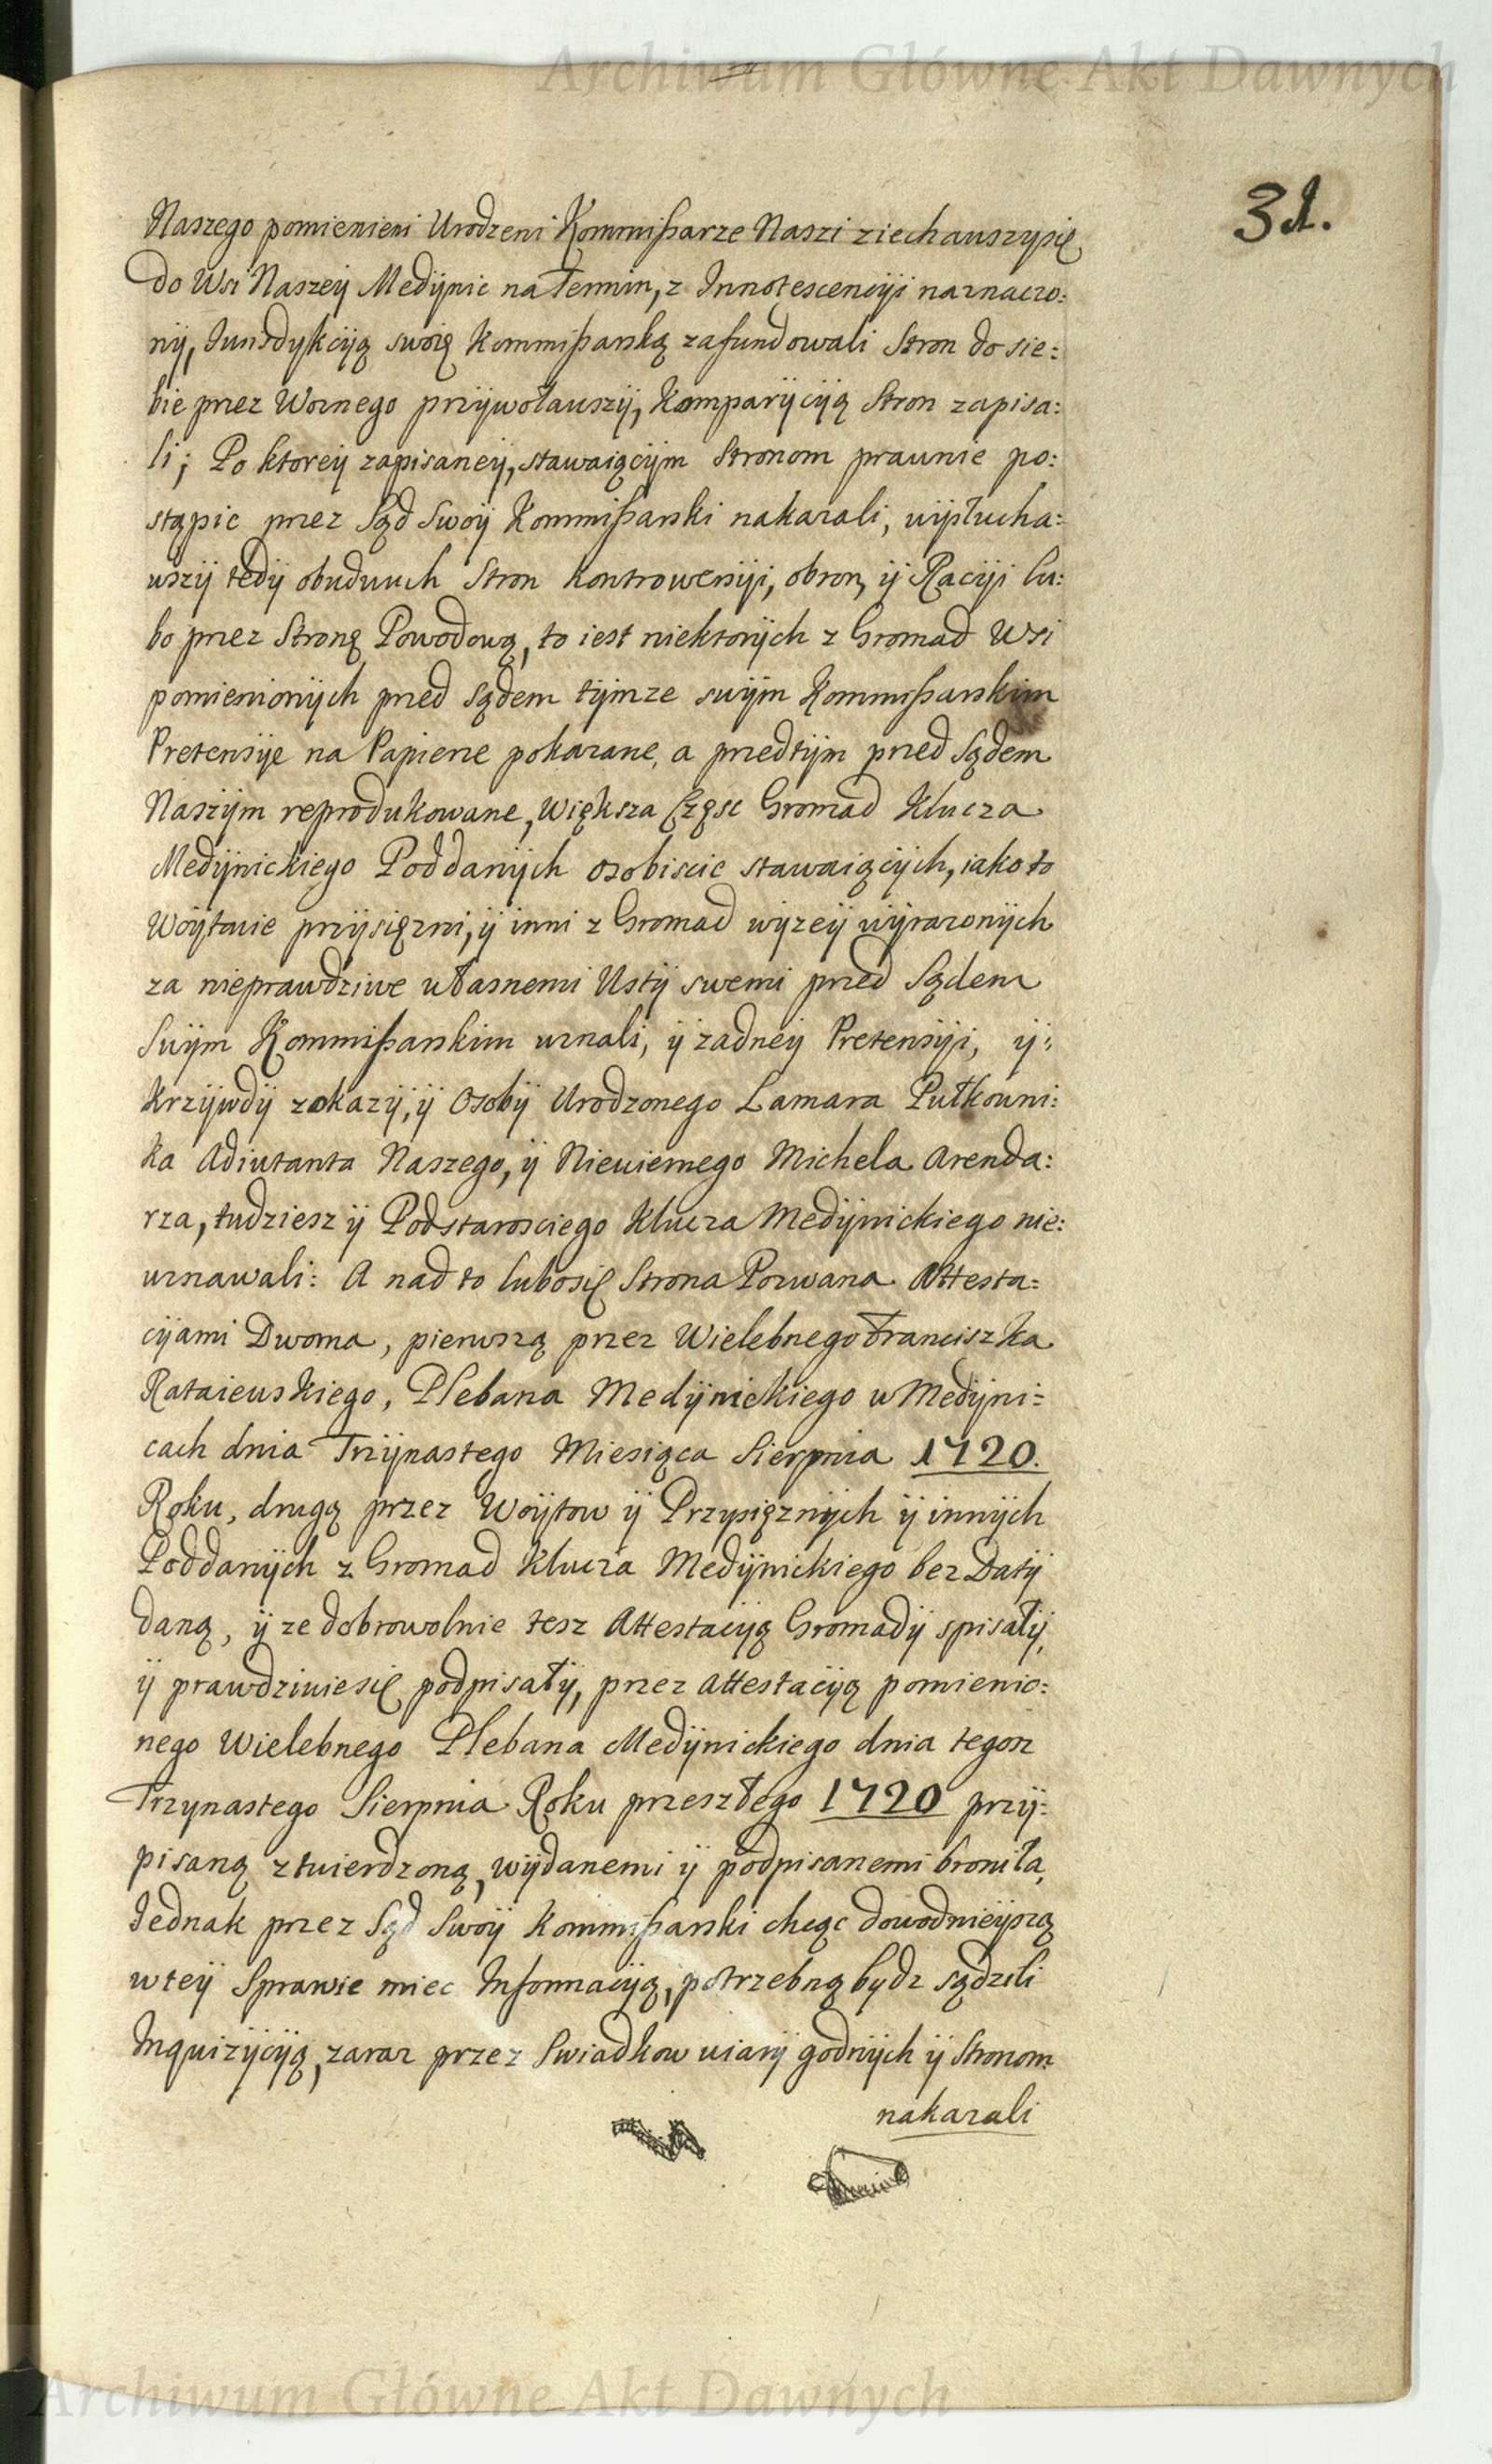 Archiwum Główne Akt Dawnych
31.
Naszego pomienieni Urodzeni Kommißarze Naszi ziechawszysię
do Wsi Naszeÿ Medÿnic na Termin, z Innotescencÿi naznaczo:
nÿ, Jurisdykcÿą swoię Kommißarską zafundowali Stron do sie:
bie przez Woznego przÿwoławszÿ, Komparÿcÿą Stron zapisa:
li; Po ktoreÿ zapisaneÿ, stawaiącÿm Stronom prawnie po:
stąpic przez Sąd Swoÿ Kommißarski nakazali, wÿsłucha:
wszÿ tedÿ obudwuch Stron Kontrowersÿi, obron, ÿ Racÿi lu:
bo przez Stronę Powodową, to iest niektorÿch z Gromad Wsi
pomienionÿch przed Sądem tÿmze swÿm Kommißarskim
Pretensÿe na Papierze pokazane, a przedtÿm przed Sądem
Naszÿm reprodukowane, Większa Częsc Gromad Klucza
Medÿnickiego Poddanÿch osobiscie stawaiącÿch, iako to
Woÿtowie przÿsięzni, ÿ inni z Gromad wÿzeÿ wÿrazonÿch
za nieprawdziwe własnemi Ustÿ swemi przed Sądem
Swÿm Kommißarskim uznali, ÿ zadneÿ Pretensÿi, ÿ:
Krzÿwdÿ zokazÿ, ÿ Osobÿ Urodzonego Lamara Pułkowni:
ka Adiutanta Naszego, ÿ Niewiernego Michela Arenda:
rza, tudziesz ÿ Podstarosciego Klucza Medÿnickiego nie:
uznawali: A nad to lubosię Strona Pozwana Attesta:
cÿami Dwoma, pierwszą przez Wielebnego Franciszka
Rataiewskiego, Plebana Medÿnickiego w Medÿni:
cach dnia Trzÿnastego Miesiąca Sierpnia 1720.
Roku, drugą przez Woÿtow ÿ Przysięznÿch ÿ innÿch
Poddanÿch z Gromad Klucza Medÿnickiego bez Datÿ
daną, ÿ ze dobrowolnie tesz Attestacÿą Gromadÿ spisałÿ,
ÿ prawdziwiesię podpisałÿ, przez Attestacÿą pomienio:
nego Wielebnego Plebana Medÿnickiego dnia tegoz
Trzynastego Sierpnia Roku przeszłego 1720 przÿ:
pisaną ztwierdzoną, wÿdanemi ÿ podpisanemi broniła,
Jednak przez Sąd Swoÿ Kommißarski chcąc dowodnieÿszą
wteÿ Sprawie miec Informacÿą, potrzebną bydz sądzili
Inquizÿcÿą, zaraz przez Swiadkow wiarÿ godnÿch ÿ Stronom
nakazali
Archiwum Główne Akt Dawnych